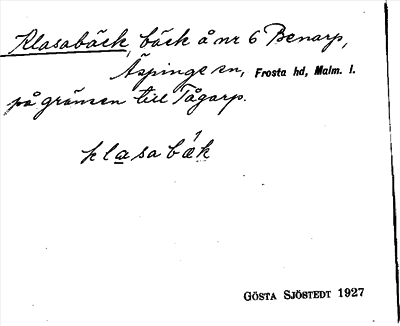 Klasabäck, bäck å nr 6 Benarp,
Äspinge sn, Frosta hd, Malm. l.
på gränsen till Tågarp.
klasabæ̀k
GÖSTA SJÖSTEDT 1927